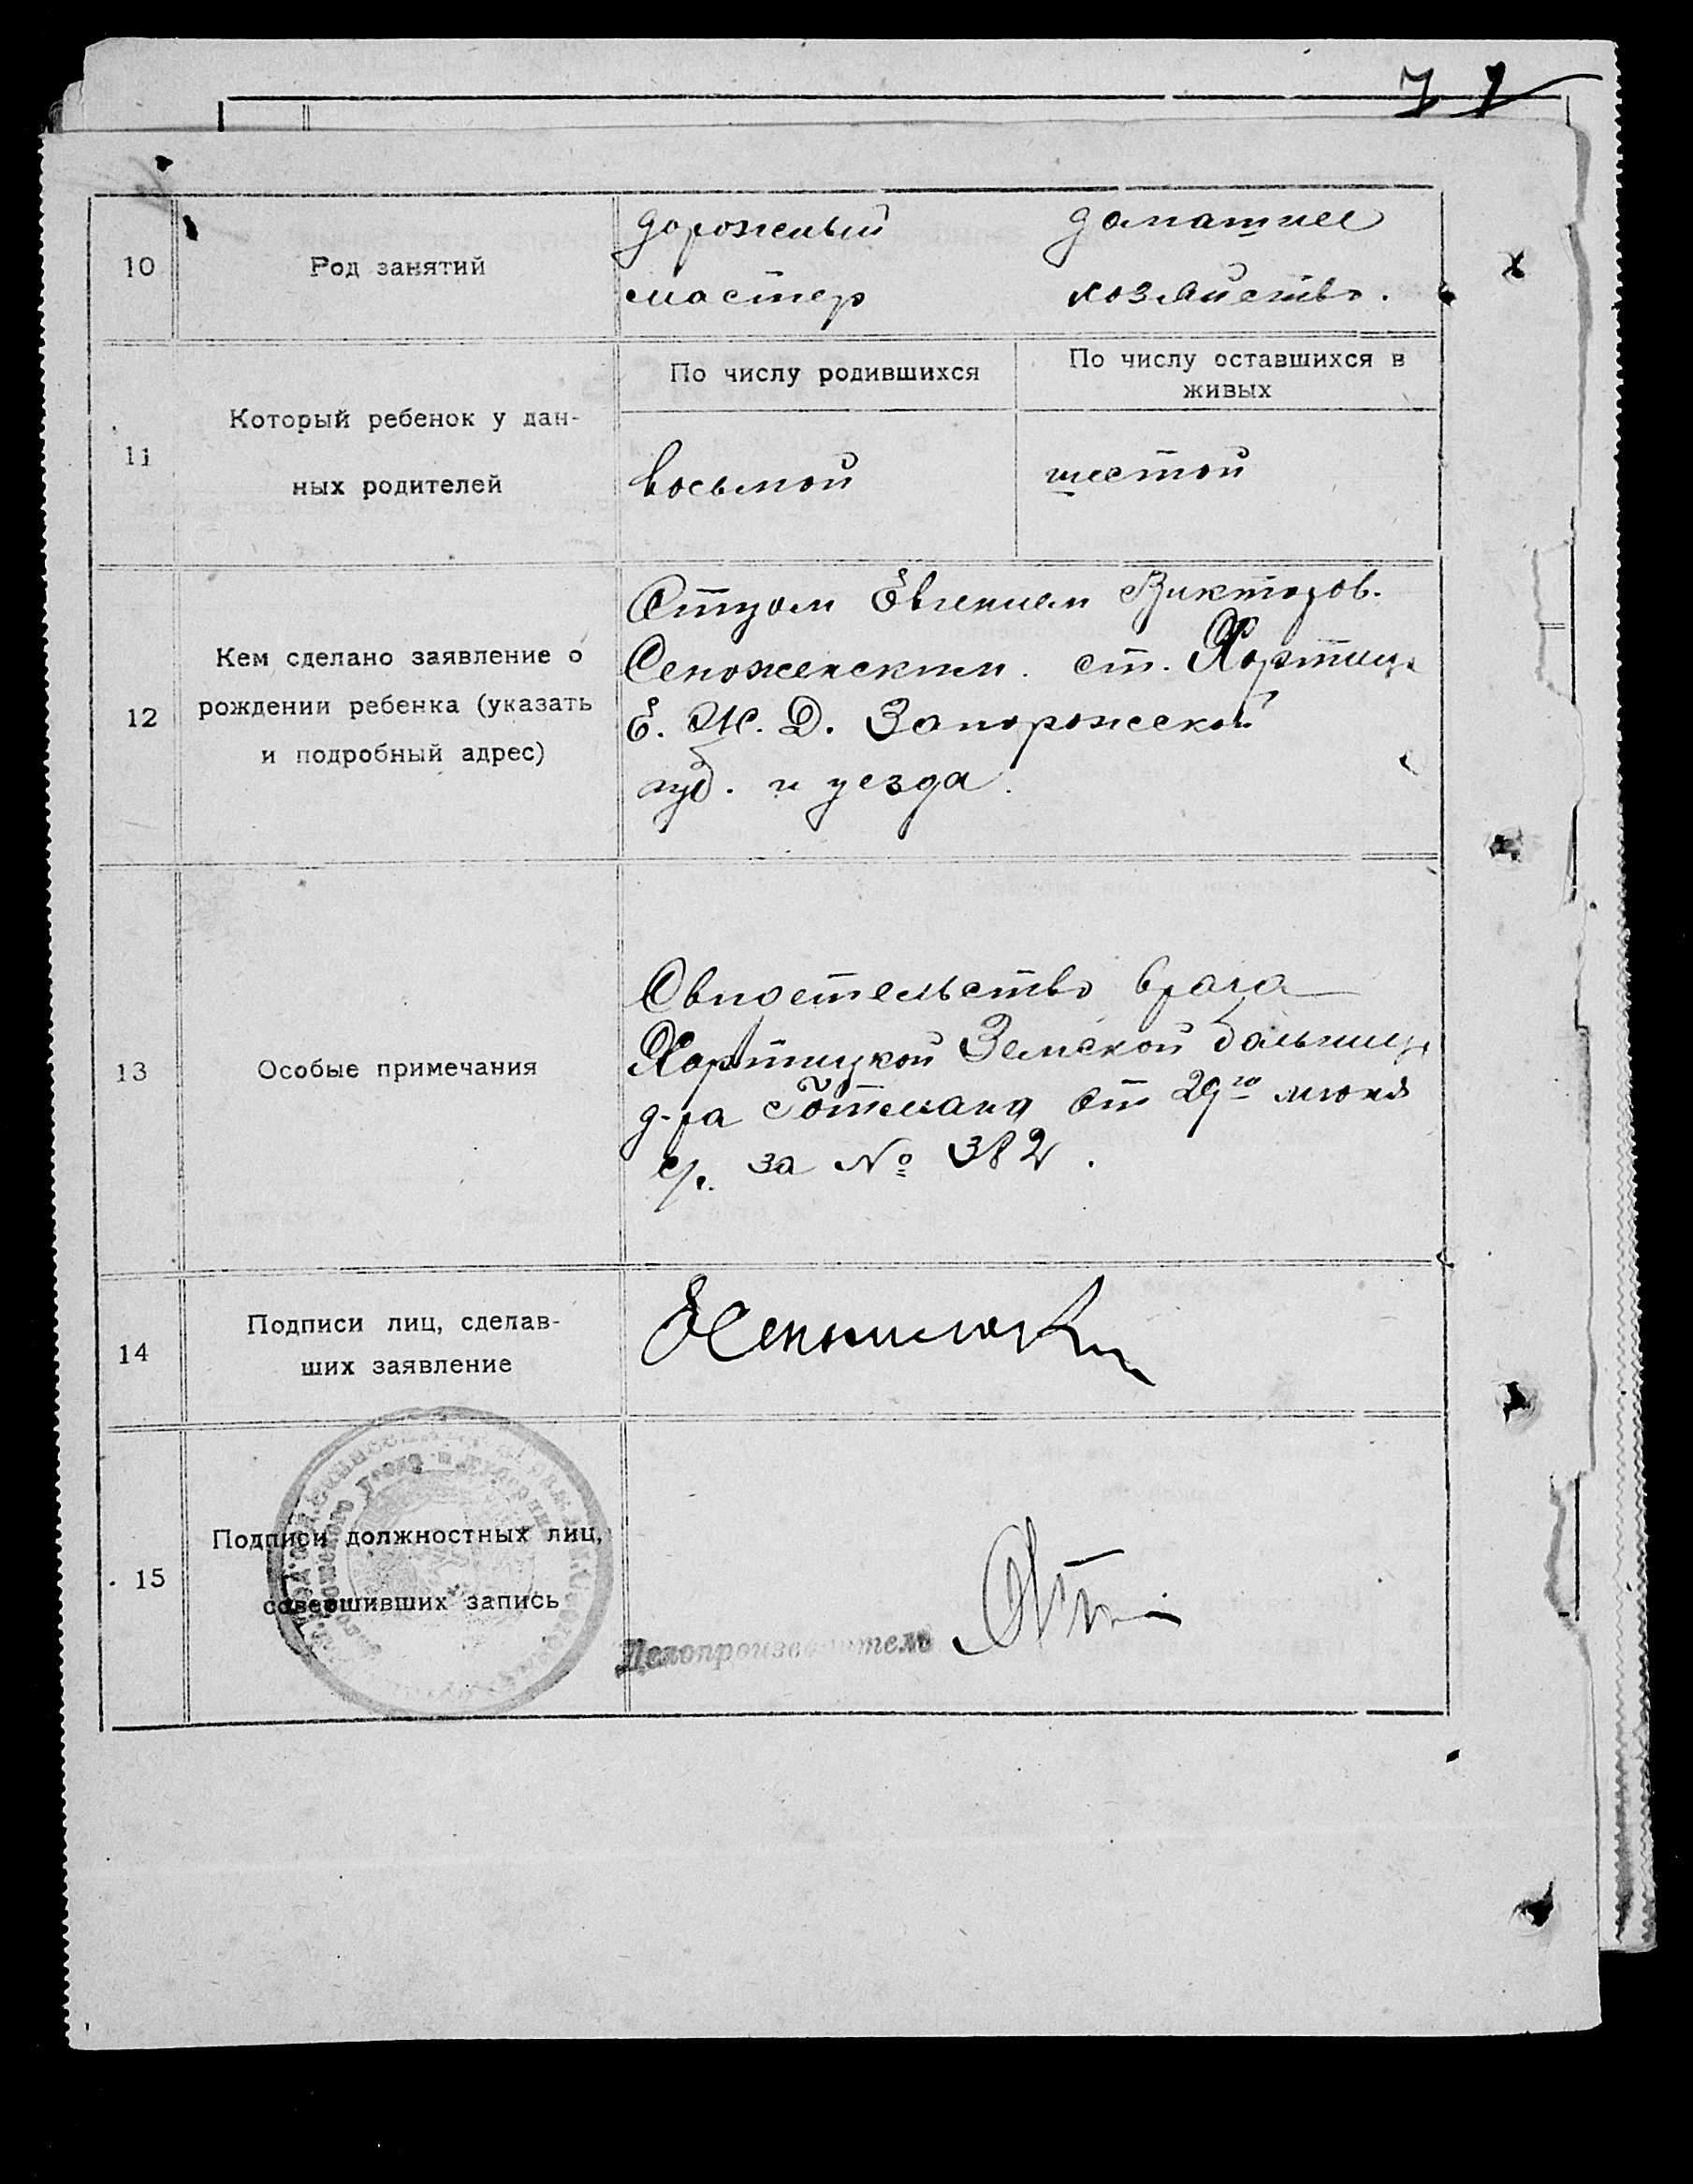 71
10
Род занятий
дорожный
мастер
домашнее
хозяйство.
11
Который ребенок у дан-
ных родителей
По числу родившихся
По числу оставшихся в
живых
восьмой
шестой
12
Кем сделано заявление о
рождении ребенка (указать
и подробный адрес)
Отцом Евгением Викторов.
Сеноженским. ст. Хортица
Е. Ж. Д. Запорожской
губ. и уезда.
13
Особые примечания
Свидетельство врача
Хортицкой Земской больницы
д-ра Готмана от 29го июня
с/г. за № 382.
14
Подписи лиц, сделав-
ших заявление
15
Подписи должностных лиц,
совершивших запись
Делопроизводитель